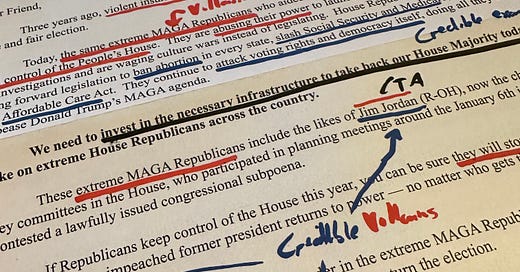 r Friend,
Three years ago, violent insu
and fair election.
Today, the same extreme MAGA Republicans who aide
control of the People's House. They are abusing their power to launch
investigations and are waging culture wars instead of legislating. House Republican
ng forward legislation to ban abortion in every state, slash Social Security and Medica
Affordable Care Act. They continue to attack voting rights and democracy itself, doing all they
pease Donald Trump's MAGA agenda.
Credible
We need to invest in the necessary infrastructure to take back our House Majority toda
ke on extreme House Republicans across the country.
CTA
These extreme MAGA Republicans include the likes of Jim Jordan (R-OH), now the c
ey committees in the House, who participated in planning meetings around the January 6th i
ontested a lawfully issued congressional subpoena.
If Republicans keep control of the House this year, you can be sure they will stop
impeached former president returns to power — no matter who gets
Credible Villains
er in the extreme MAGA Repu
turn the election.